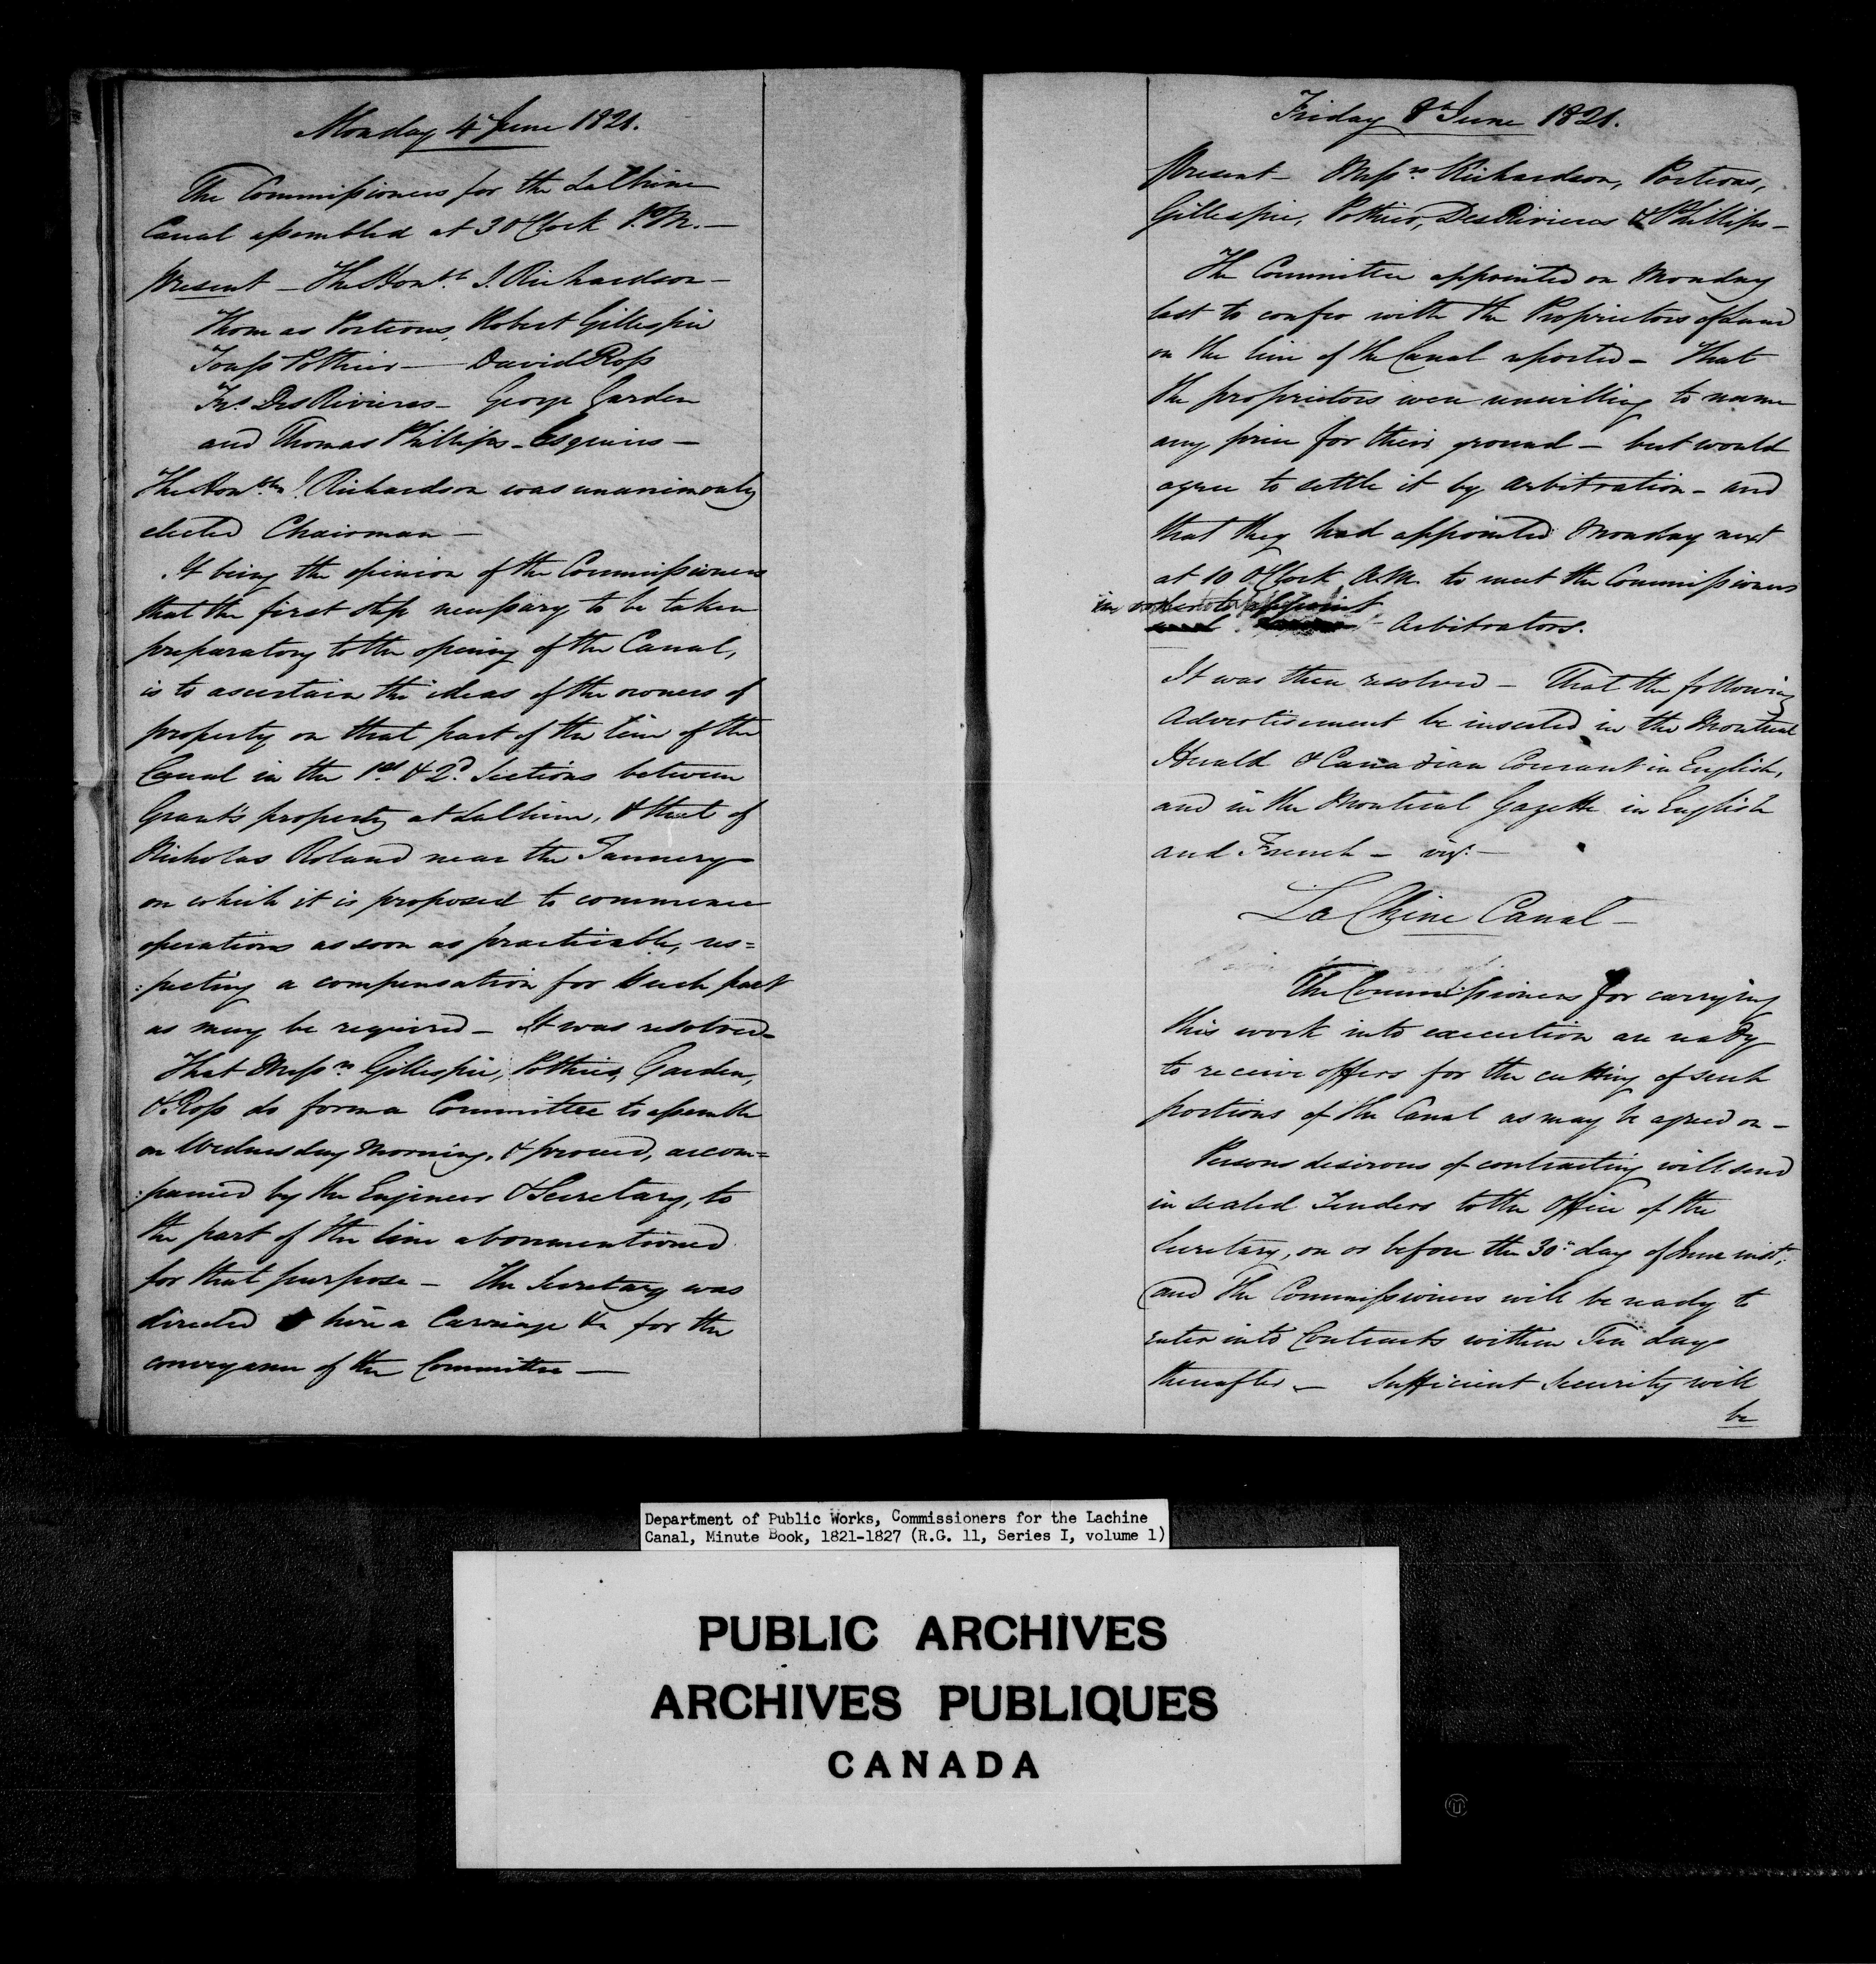 Monday 4 June 1821.
The Commissioners for the LaChine
Canal assembled at 3 OClock P.M. —
Present — The Honble. J. Richardson —
Thomas Porteous, Robert Gillespie
Tousst Pothier — David Ross
Frs. DesRivieres — George Garden
and Thomas Phillips — Esquires —
The Honble. J. Richardson was unanimously
elected Chairman —
It being the opinion of the Commissioners
that the first step necessary to be taken
preparatory to the opening of the Canal,
is to ascertain the ideas of the owners of
property on that part of the line of the
Canal in the 1st. & 2d. Sections between
Grant's property at LaChine, & that of
Nicholas Roland near the Tannery
on which it is proposed to commence
operations as soon as practicable, res=
:pecting a compensation for such part
as may be required — It was resolved —
That Messrs. Gillespie, Pothier, Garden,
& Ross do form a Committee to assemble
on Wednesday Morning, & proceed, accom=
:panied by the Engineer & Secretary, to
the part of the line abovementioned
for that purpose — The Secretary was
directed hire a Carriage &c for the
conveyance of the Committee —
Friday 8th June 1821.
Present — Messrs. Richardson, Porteous,
Gillespie, Pothier, DesRivieres & Phillips —
The Committee appointed on Monday
last to confer with the Proprietors of Land
on the line of the Canal reported — That
the proprietors were unwilling to name
any price for their ground — but would
agree to settle it by Arbitration — and
that they had appointed Monday next
at 10 OClock A.M. to meet the Commissioners
in order to appoint
Arbitrators.
It was then resolved — That the following
Advertisement be inserted in the Montreal
Herald & Canadian Courant in English,
and in the Montreal Gazette in English
and French — viz. —
LaChine Canal —
The Commissioners for carrying
this work into execution are ready
to receive offers for the cutting of such
portions of the Canal as may be agreed on —
Persons desirous of contracting will send
in sealed Tenders to the Office of the
Secretary, on or before the 30th day of June inst.
and the Commissioners will be ready to
enter into Contracts within Ten days
thereafter — Sufficient Security will
be
Department of Public Works, Commissioners for the Lachine
Canal, Minute Book, 1821-1827 (R.G. 11, Series I, volume 1)
PUBLIC ARCHIVES
ARCHIVES PUBLIQUES
CANADA